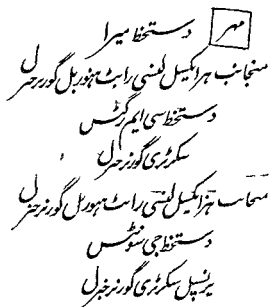 مہر دستخط میرا
منجانب ہزاکسیل لفنسی رابٹ ہنوربل گورنر جنرل
دستخط سی ایم رکٹس
سکرٹری گورنر جنرل
منجانب ہزاکسیل لفنسی رابٹ ہنوربل گورنر جنرل
دستخط جی سونٹس
پرنسپل سکرٹری گورنر جنرل